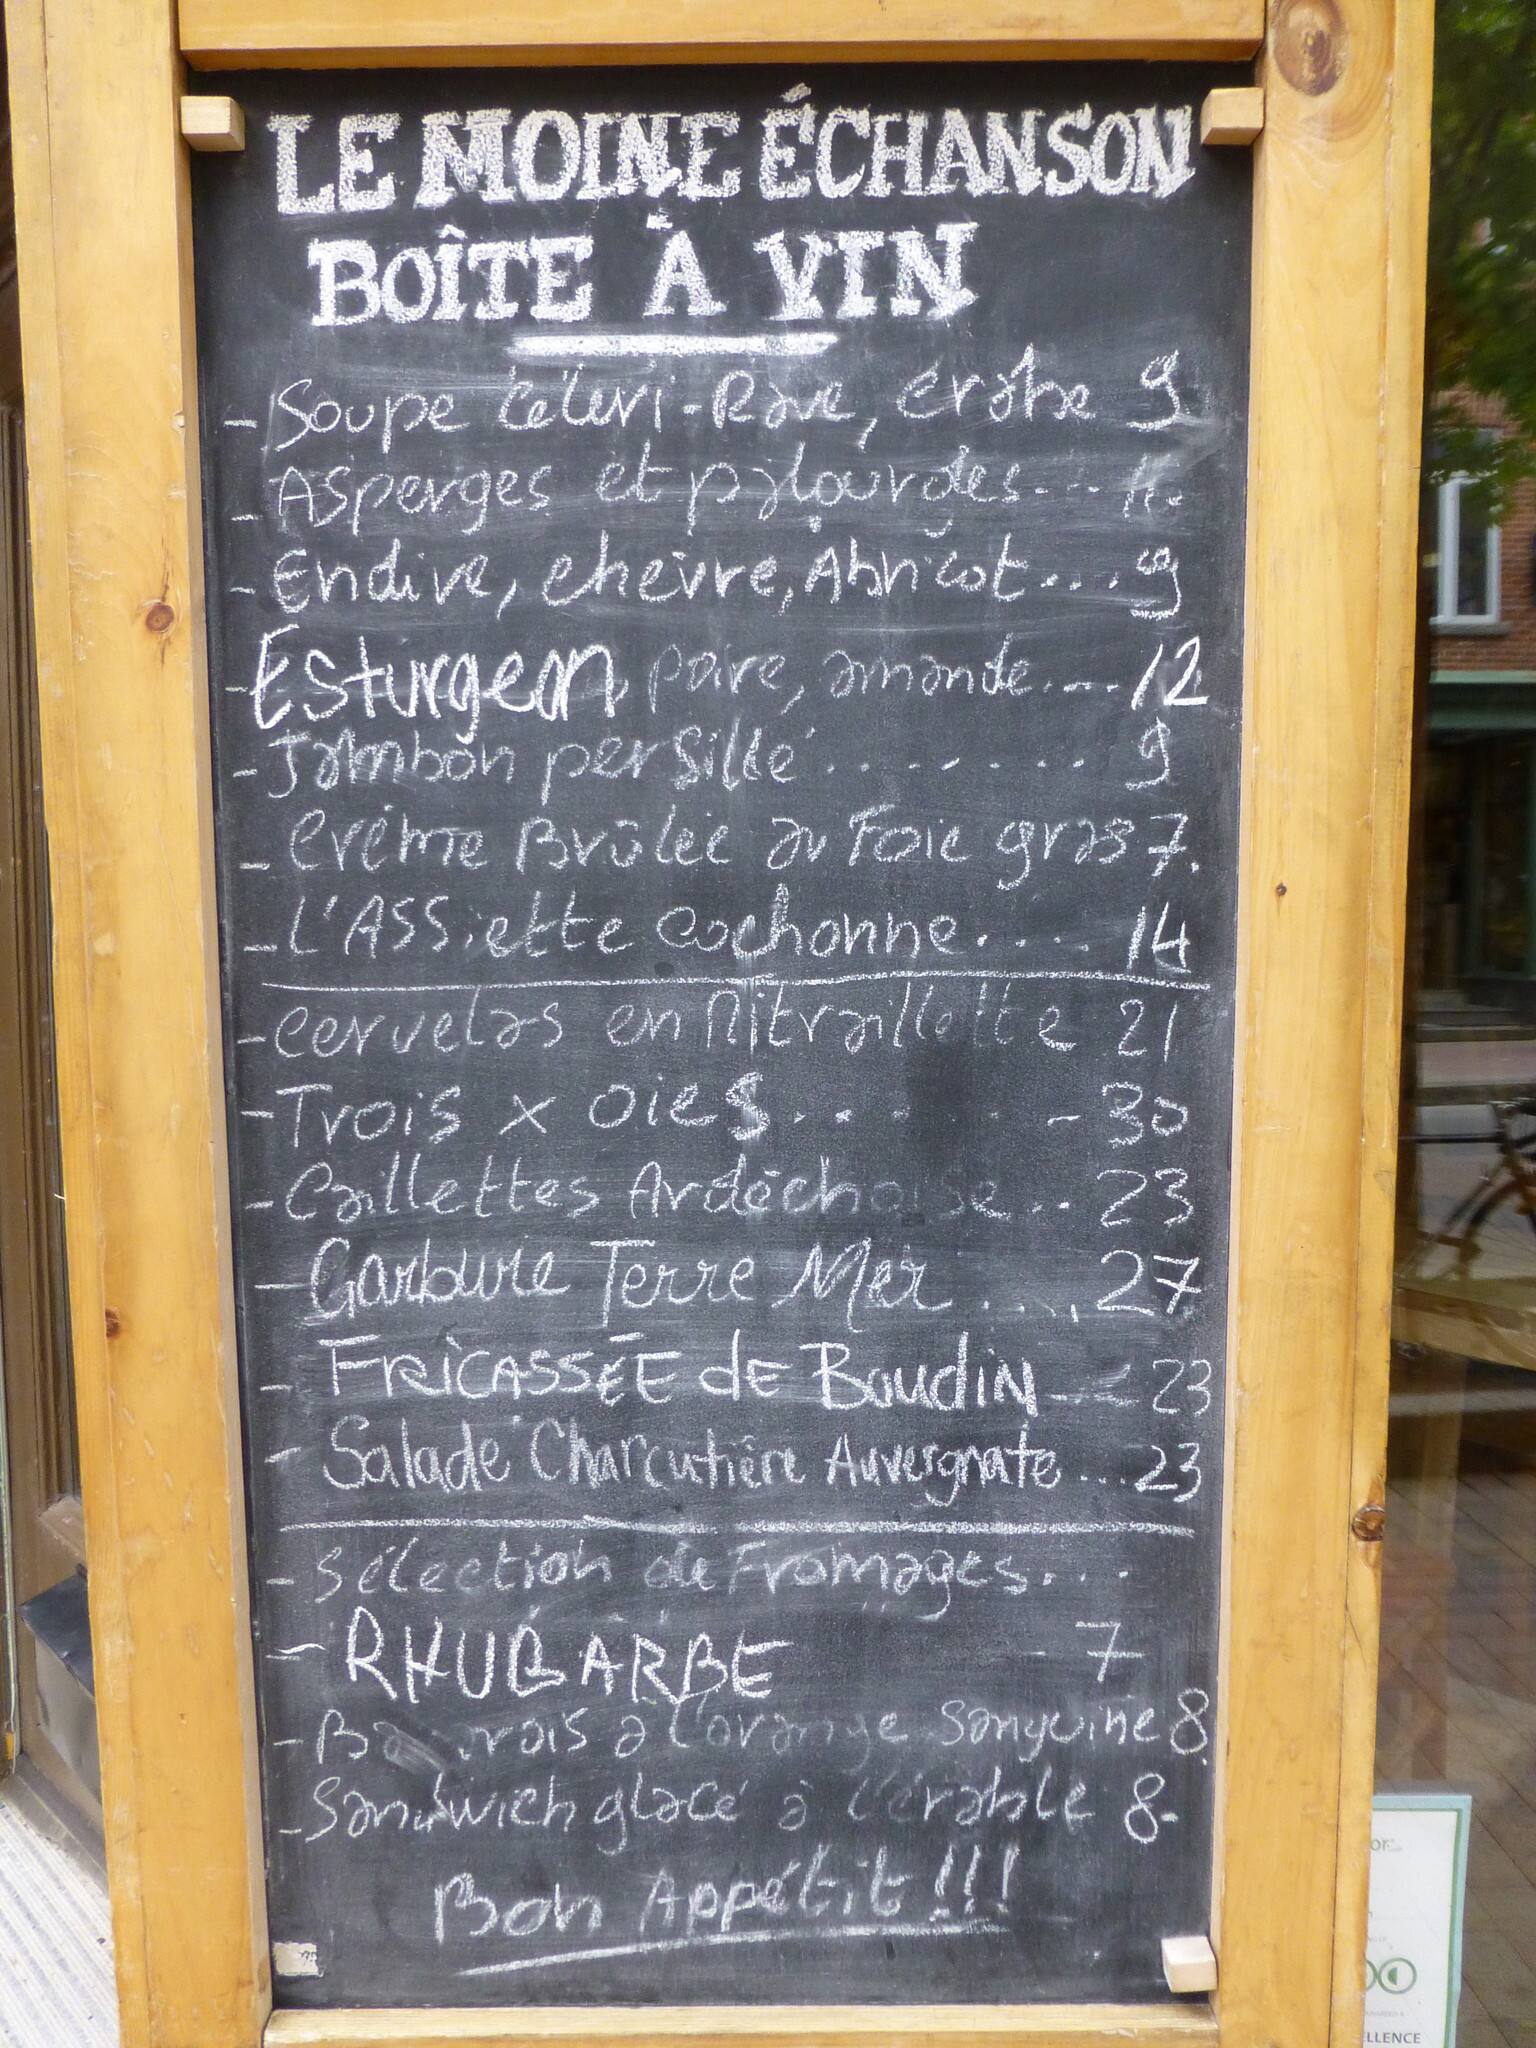 LE MOINE ÉCHANSON
BOÎTE À VIN
- Soupe Céleri-Rave, crabe 9
- Asperges et palourdes... 11.
- Endive, chèvre, Abricot... 9
- Esturgeon, poire, amande.... 12
- Jambon persillé ........ 9
- Crème Brûlée au Foie gras 7.
- L'Assiette cochonne.... 14
- Cervelas en Mitraillette 21
- Trois x oies... - 30
- Caillettes Ardéchoise.. 23
- Garbure Terre Mer .... 27
- FRICASSÉE dE BoudIN 23
- Salade Charcutière Auvergnate ...23
- Sélection de Fromages...
- RHUBARBE - 7
- à l'orange sanguine 8.
- Sandwich glacé à l'érable 8-
Bon Appétit!!!
ELLENCE